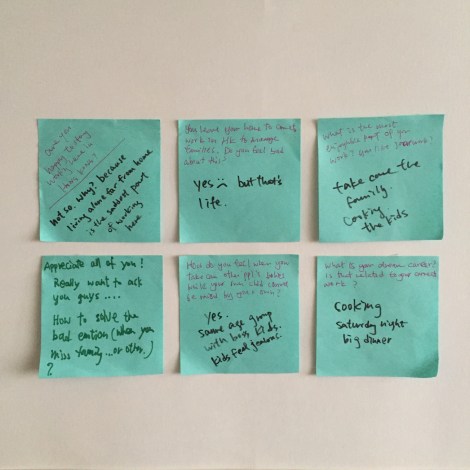 Are you
happy
Not so. Why? because
living alone far from home
is the saddest part
of working
here
You leave your home to come &
work in HK to manage
families. Do you feel bad
about this?
yes ☹ but that's
life.
What is the most
enjoyable part of your
work?
take care the
family.
cooking
the kids
Appreciate all of you!
Really want to ask
you guys ....
How to solve the
bad emtion (when you
miss family...or other.)
?
How do you feel when you
take care other ppl's babies
while your own child cannot
be raised by your own?
Yes.
Same age group
with boss kids.
kids feel jealous.
What is your dream career?
Is that related to your current
work?
cooking
saturday night
big dinner